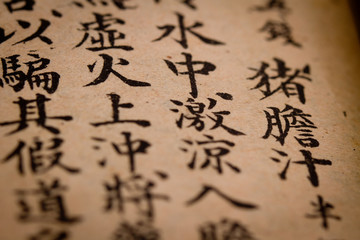 猪膽汁半
水中激涼入
虛火上冲將
以騙其假道